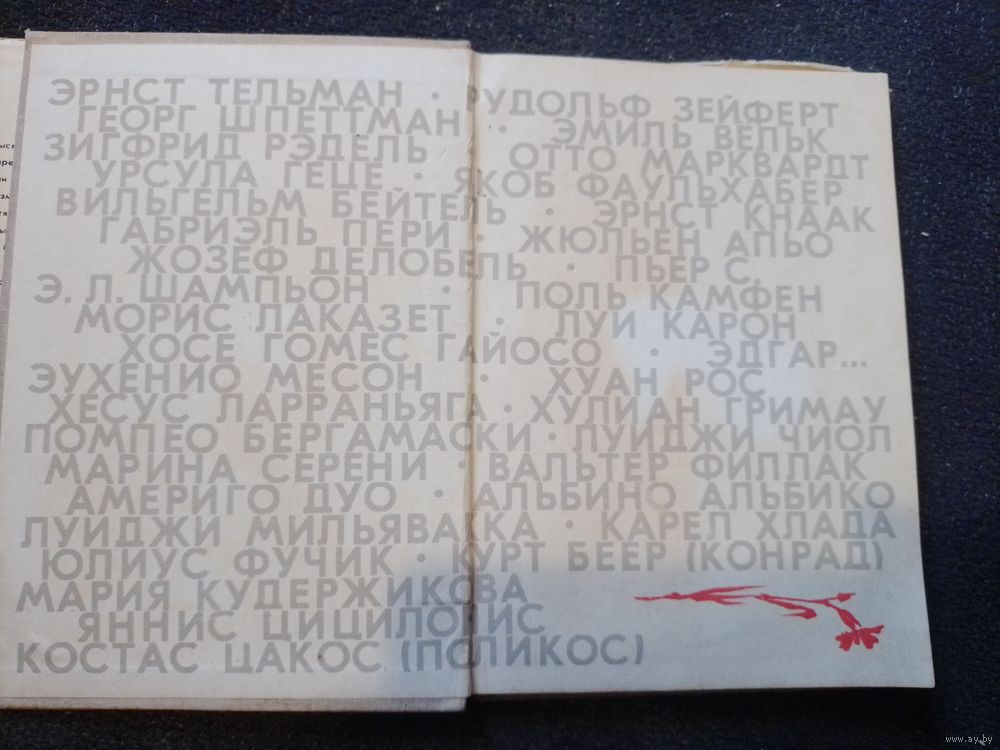 ЭРНСТ ТЕЛЬМАН · РУДОЛЬФ ЗЕЙФЕРТ
ГЕОРГ ШПЕТТМАН · ЭМИЛЬ ВЕЛЬК
ЗИГФРИД РЭДЕЛЬ · ОТТО МАРКВАРДТ
УРСУЛА ГЕЦЕ · ЯКОБ ФАУЛЬХАБЕР
ВИЛЬГЕЛЬМ БЕЙТЕЛЬ · ЭРНСТ КНААК
ГАБРИЭЛЬ ПЕРИ · ЖЮЛЬЕН АПЬО
ЖОЗЕФ ДЕЛОБЕЛЬ · ПЬЕР С.
Э. Л. ШАМПЬОН · ПОЛЬ КАМФЕН
МОРИС ЛАКАЗЕТ · ЛУИ КАРОН
ХОСЕ ГОМЕС ГАЙОСО · ЭДГАР...
ЭУХЕНИО МЕСОН · ХУАН РОС
ХЕСУС ЛАРРАНЬЯГА · ХУЛИАН ГРИМАУ
ПОМПЕО БЕРГАМАСКИ · ЛУИДЖИ ЧИОЛ
МАРИНА СЕРЕНИ · ВАЛЬТЕР ФИЛЛАК
АМЕРИГО ДУО · АЛЬБИНО АЛЬБИКО
ЛУИДЖИ МИЛЬЯВАККА · КАРЕЛ ХЛАДА
ЮЛИУС ФУЧИК · КУРТ БЕЕР (КОНРАД)
МАРИЯ КУДЕРЖИКОВА
ЯННИС ЦИЦИЛОНИС
КОСТАС ЦАКОС (ПОЛИКОС)
www.ay.by